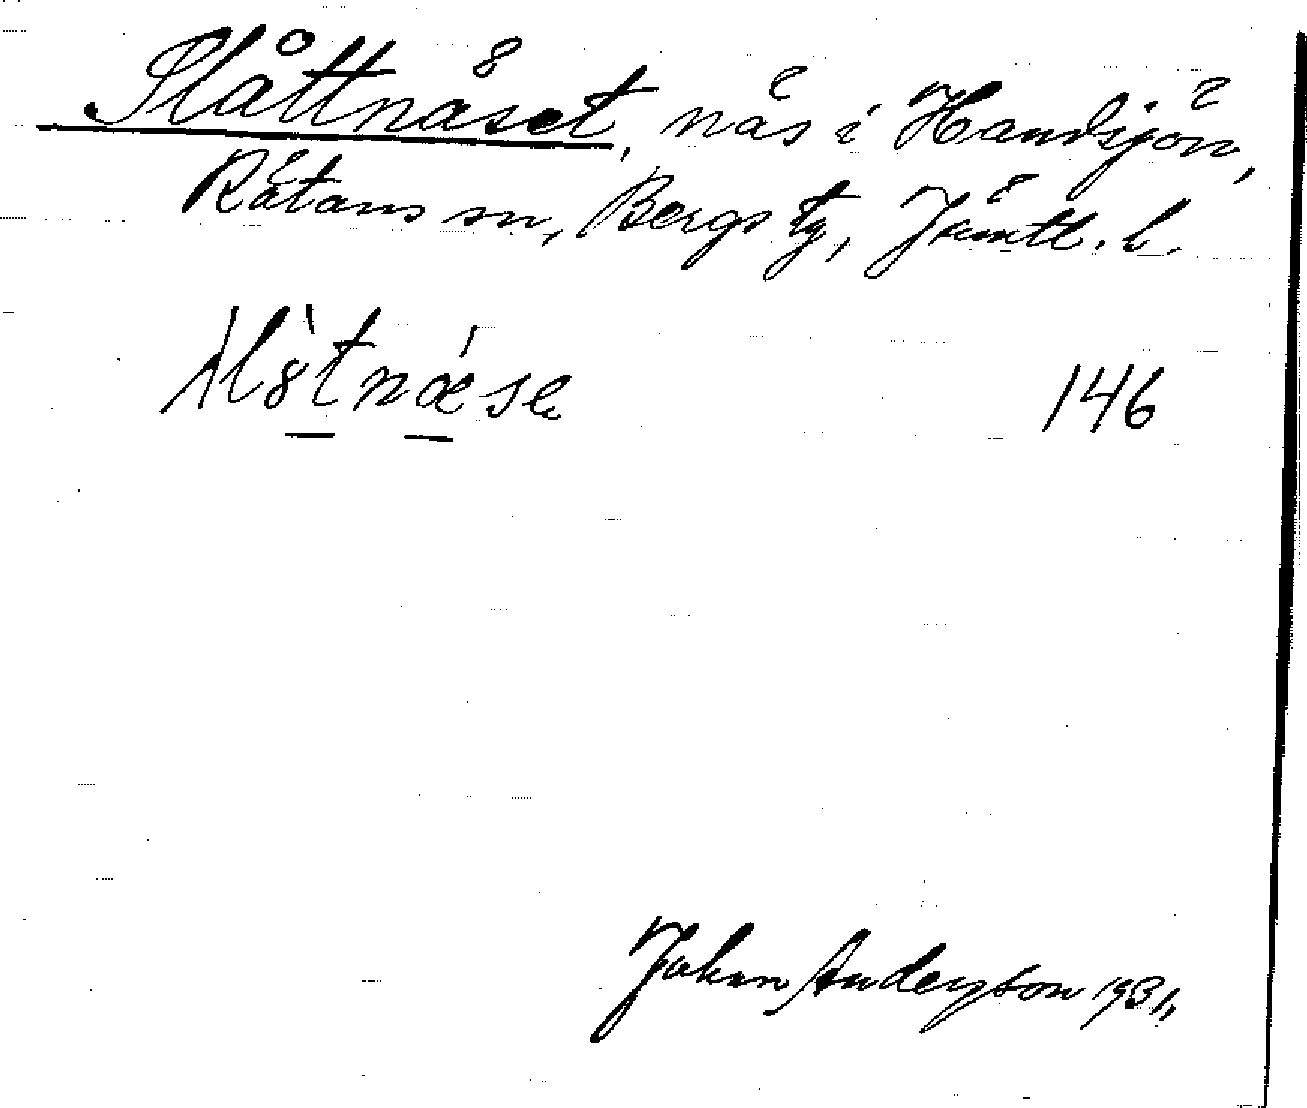 Slåttnäset, näs i Handsjön,
Rätans sn, Bergs tg, Jämtl. l.
146
Johan Anderson 1931